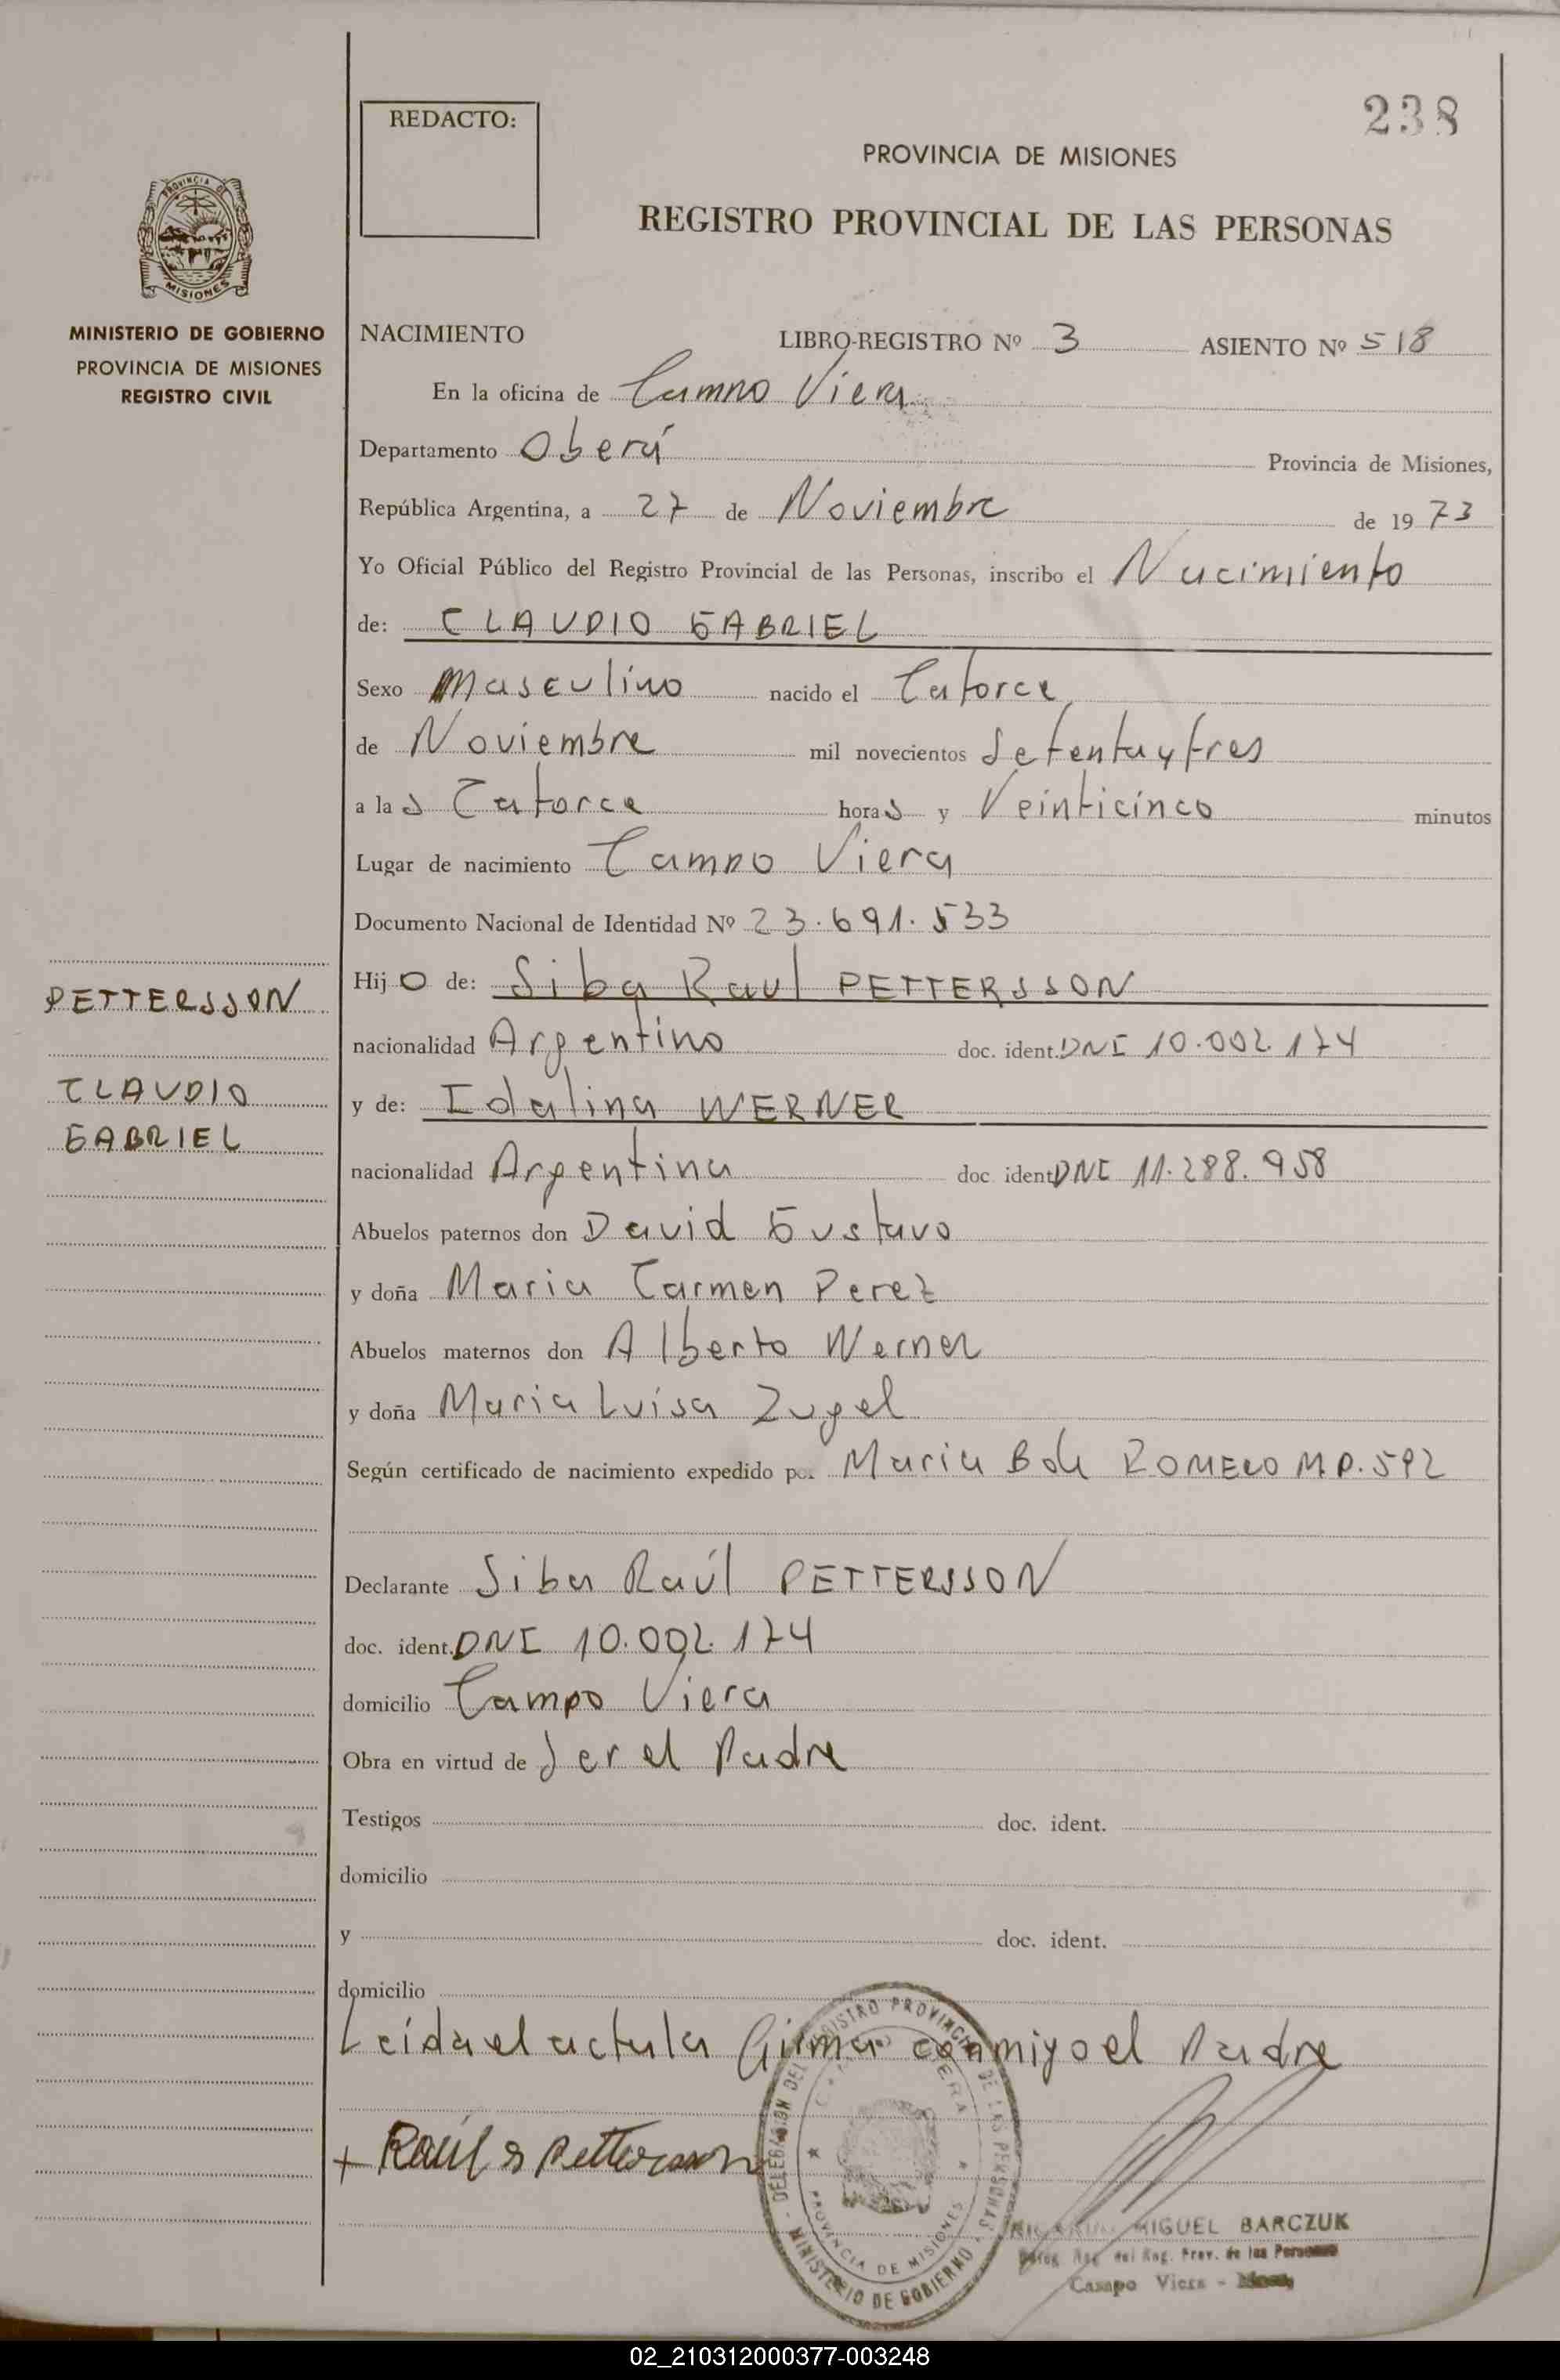 238
REDACTO:
PROVINCIA DE MISIONES
REGISTRO PROVINCIAL DE LAS PERSONAS
PROVINCIA DE
MISIONES
MINISTERIO DE GOBIERNO
PROVINCIA DE MISIONES
REGISTRO CIVIL
NACIMIENTO LIBRO-REGISTRO Nº 3 ASIENTO Nº 518
En la oficina de Campo Viera
Departamento Oberá Provincia de Misiones,
República Argentina, a 27 de Noviembre de 1973
Yo Oficial Público del Registro Provincial de las Personas, inscribo el Nacimiento
de: CLAUDIO GABRIEL
Sexo Masculino nacido el Catorce
de Noviembre mil novecientos Setentaytres
a las Catorce horas y Veinticinco minutos
Lugar de nacimiento Campo Viera
Documento Nacional de Identidad Nº 23.691.533
Hijo de: Siba Raul PETTERSSON
nacionalidad Argentino doc. ident. DNI 10.002.174
y de: Idalina WERNER
nacionalidad Argentina doc ident DNI 11.288.958
Abuelos paternos don David Gustavo
y doña Maria Carmen Perez
Abuelos maternos don Alberto Werner
y doña Maria Luisa Zugel
Según certificado de nacimiento expedido por Maria B de ROMERO M.P. 592
Declarante Siba Raúl PETTERSSON
doc. ident. DNI 10.002.174
domicilio Campo Viera
Obra en virtud de Ser el Padre
Testigos doc. ident.
domicilio
y doc. ident.
domicilio
Leida el acta la firma conmigo el Padre
+ Raúl S Pettersson
PETTERSSON
CLAUDIO
GABRIEL
DELEGACION DEL REGISTRO PROVINCIAL DE LAS PERSONAS
MINISTERIO DE GOBIERNO
PROVINCIA DE MISIONES
MIGUEL BARCZUK
Reg. Prov. de las Personas
Campo Viera - Mnes.
02_210312000377-003248